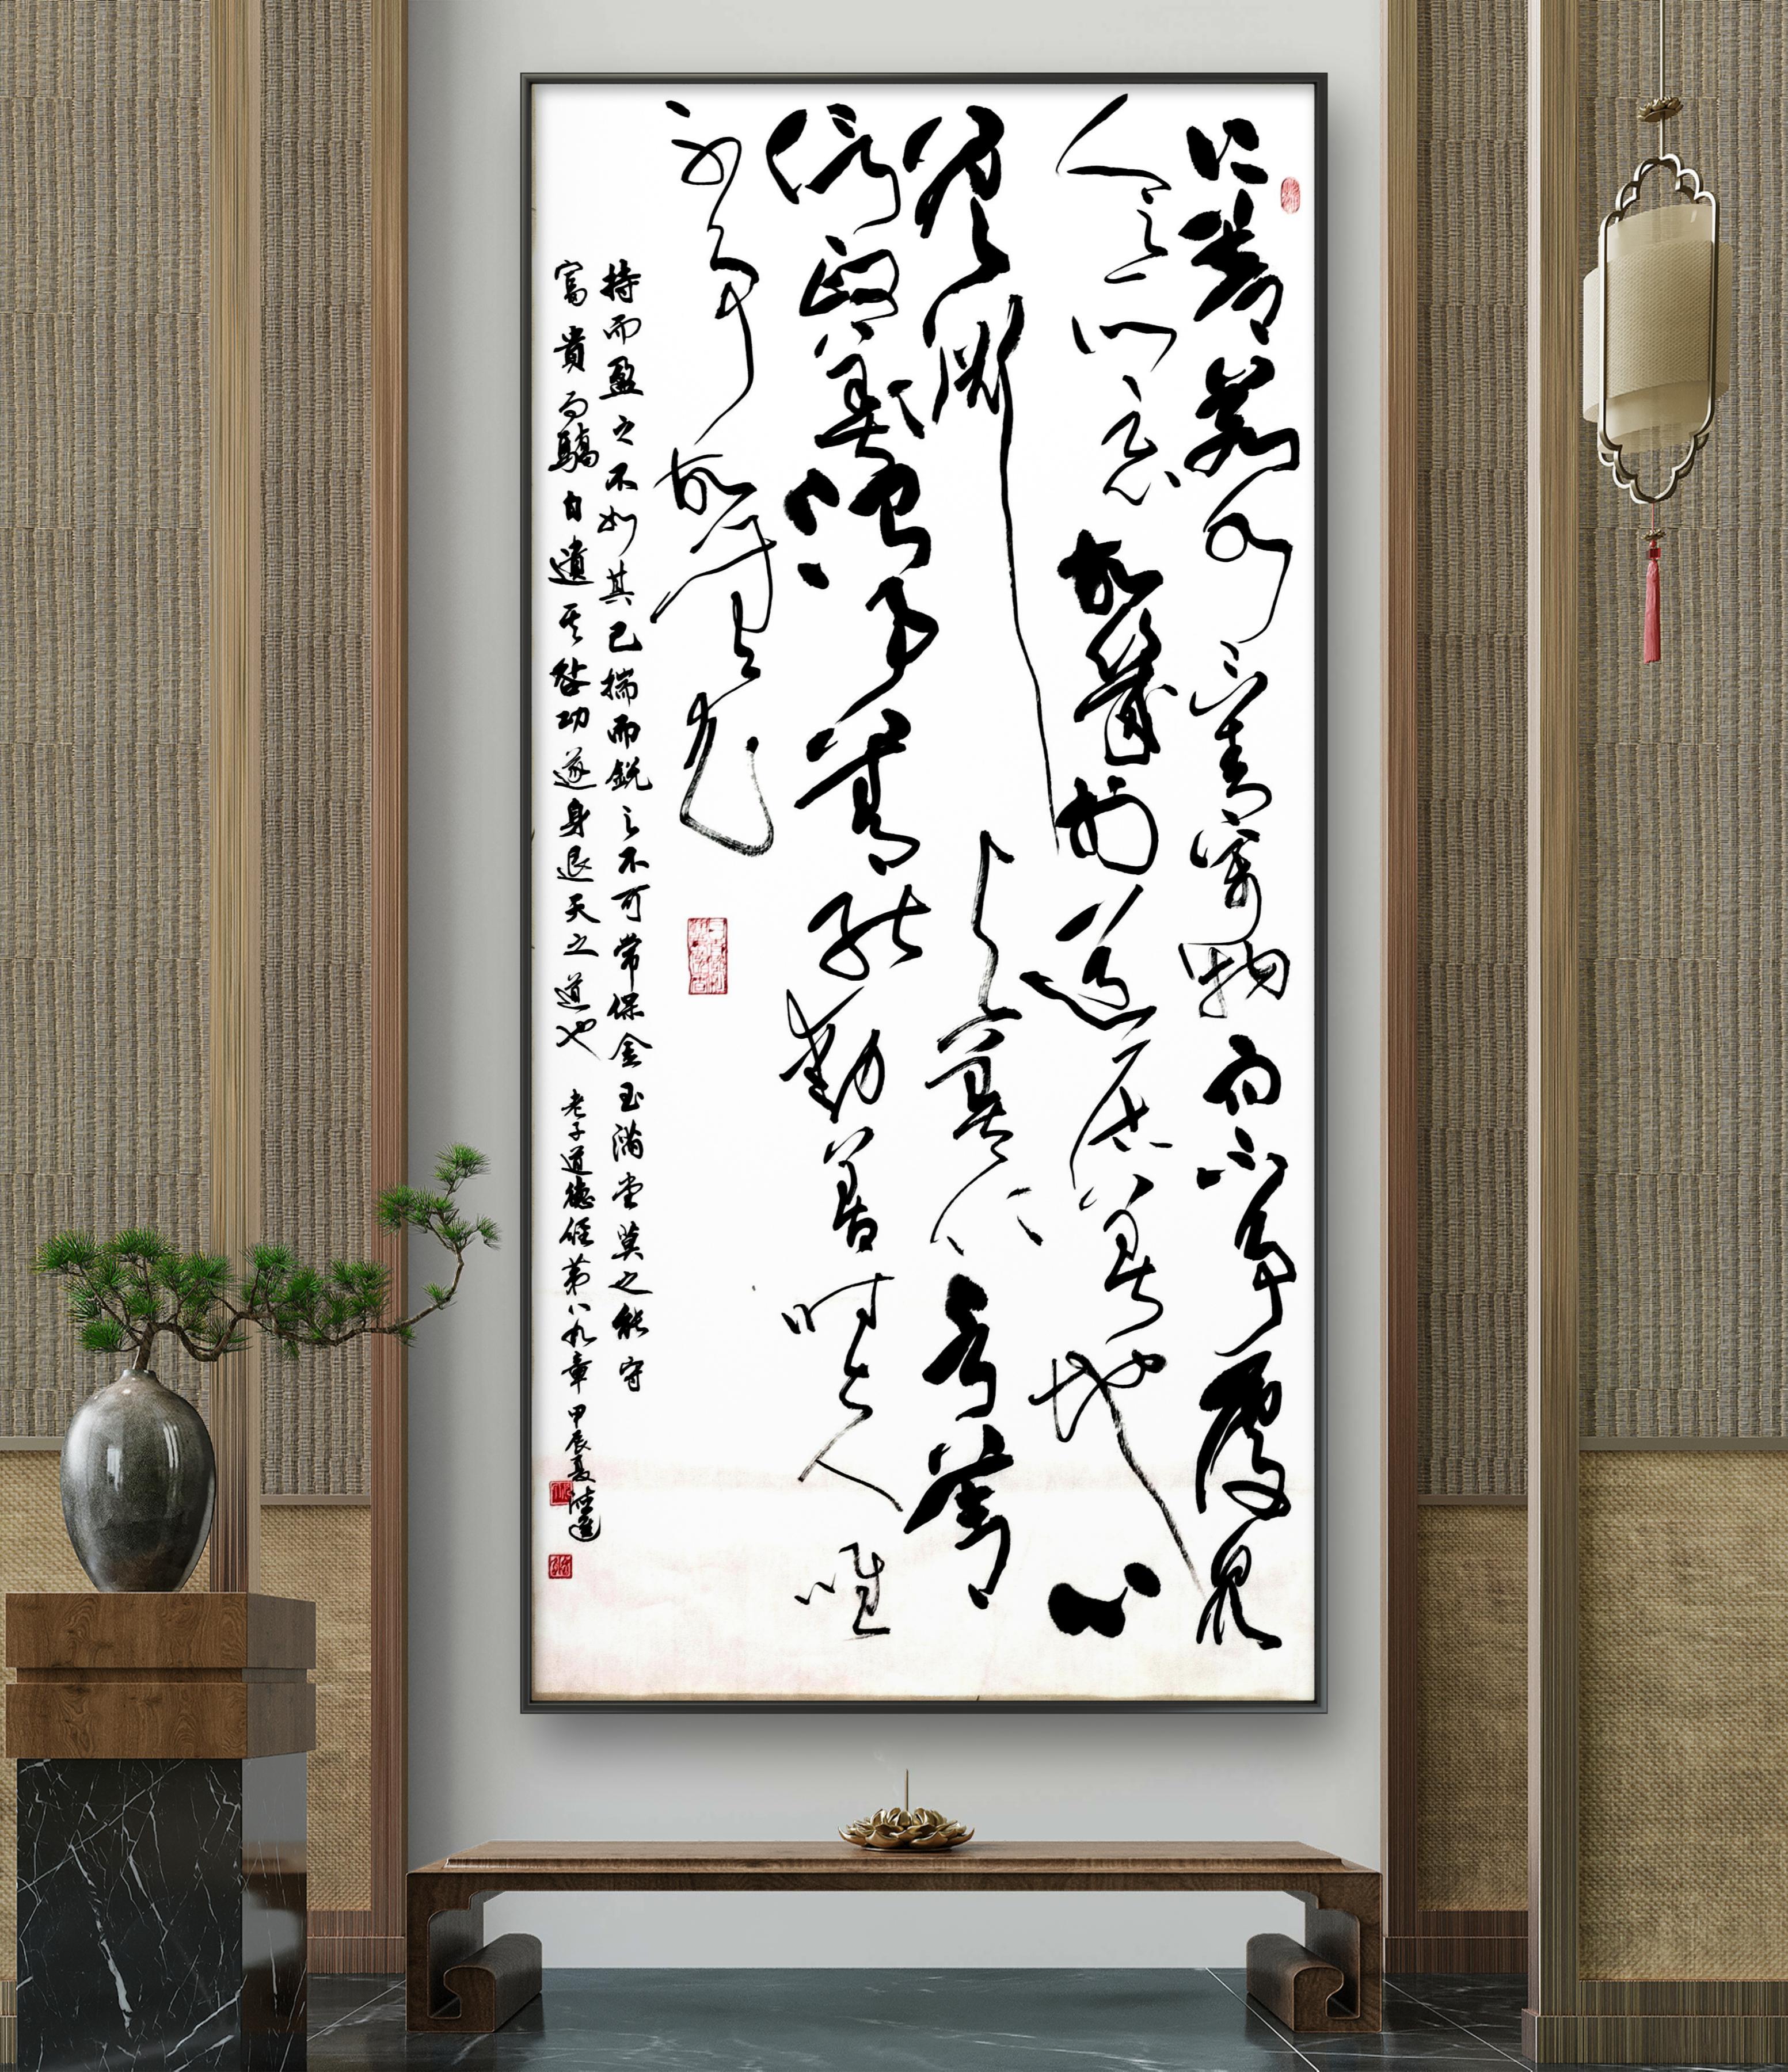 上善若水水善利萬物而不爭處眾
人之所惡故幾於道居善地心
善淵与善仁言善
信政善治事善能動善時夫唯
不爭故無尤
持而盈之不如其已揣而銳之不可常保金玉滿堂莫之能守
富貴而驕自遺其咎功遂身退天之道也 老子道德經第八九章 甲辰夏